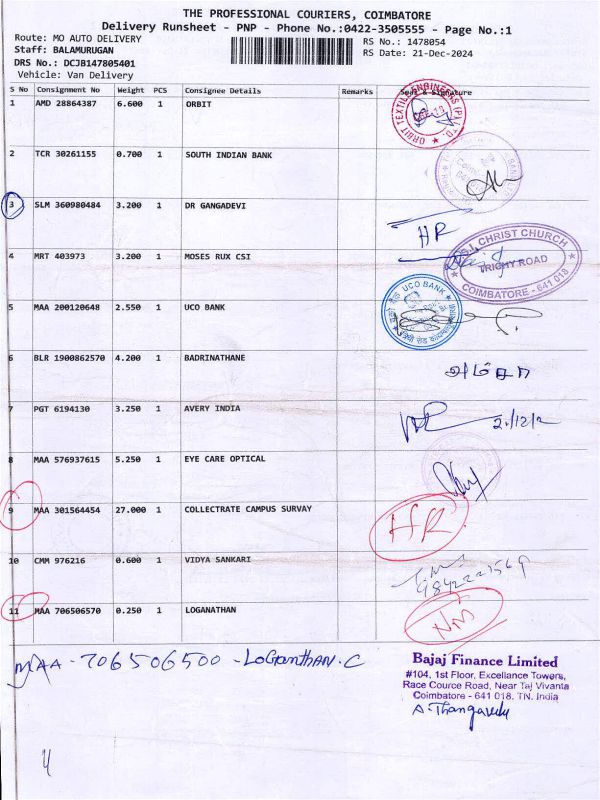 THE PROFESSIONAL COURIERS, COIMBATORE
Delivery Runsheet - PNP - Phone No.:0422-3505555 - Page No.:1
Route: MO AUTO DELIVERY
Staff: BALAMURUGAN
DRS No.: DCJB147805401
Vehicle: Van Delivery
RS No.: 1478054
RS Date: 21-Dec-2024
S No Consignment No Weight PCS Consignee Details Remarks Seal & Signature
1 AMD 28864387 6.600 1 ORBIT
ORBIT TEXTILE ENGINEERS (P) LTD.
2 TCR 30261155 0.700 1 SOUTH INDIAN BANK
3 SLM 360980484 3.200 1 DR GANGADEVI
HR
4 MRT 403973 3.200 1 MOSES RUX CSI
C.S.I. CHRIST CHURCH
TRICHY ROAD
COIMBATORE - 641 018
5 MAA 200120648 2.550 1 UCO BANK
UCO BANK
6 BLR 1900862570 4.200 1 BADRINATHANE
7 PGT 6194130 3.250 1 AVERY INDIA
8 MAA 576937615 5.250 1 EYE CARE OPTICAL
9 MAA 301564454 27.000 1 COLLECTRATE CAMPUS SURVAY
HR
10 CMM 976216 0.600 1 VIDYA SANKARI
11 MAA 706506570 0.250 1 LOGANATHAN
MAA-706506500-LoGanthAN.C
Bajaj Finance Limited
#104, 1st Floor, Excellance Towers,
Race Cource Road, Near Taj Vivanta
Coimbatore - 641 018. TN. India
A. Thangavelu